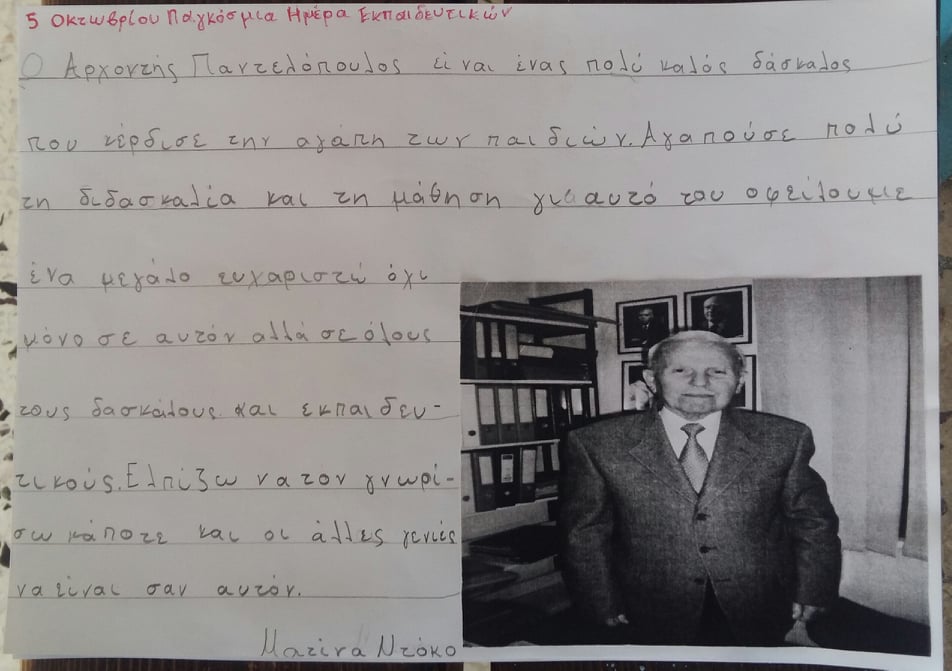 5 Οκτωβρίου Παγκόσμια Ημέρα Εκπαιδευτικών
Ο Αρχοντής Παντελόπουλος είναι ένας πολύ καλός δάσκαλος
που κέρδισε την αγάπη των παιδιών. Αγαπούσε πολύ
τη διδασκαλία και τη μάθηση γι αυτό του οφείλουμε
ένα μεγάλο ευχαριστώ όχι
μόνο σε αυτόν αλλά σε όλους
τους δασκάλους και εκπαιδευ-
τικούς. Ελπίζω να τον γνωρί-
σω κάποτε και οι άλλες γενιές
να είναι σαν αυτόν.
Ματίνα Ντόκο